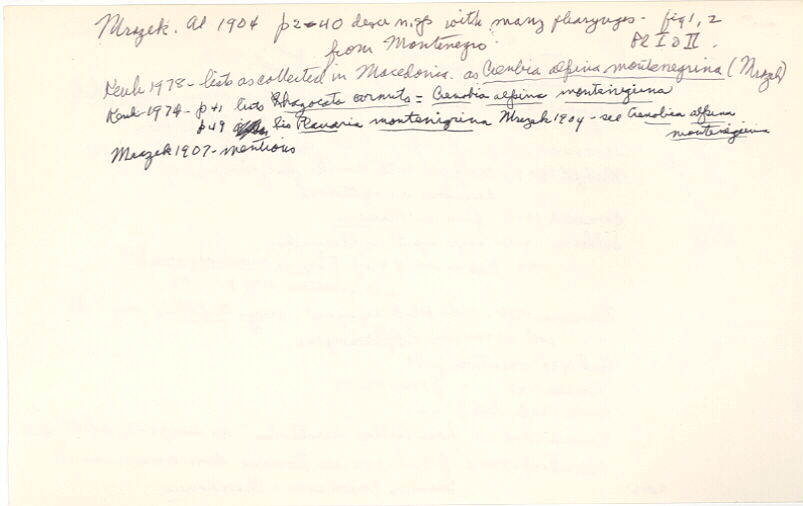 Mrazek. Al 1904 p2-40 desc n.g. with many pharynges - fig 1, 2
from Montenegro Pl I & II.
Kenk 1978 - lists as collected in Macedonia. as Crenobia alpina montenegrina (Mrazek)
Kenk 1974 - p41 lists Phagocata cornuta = Crenobia alpina montenegrina
p49 lis Planaria montenigrina Mrazek 1904 - see Crenobia alpina
montenegrina
Mrazek 1907 - mentions